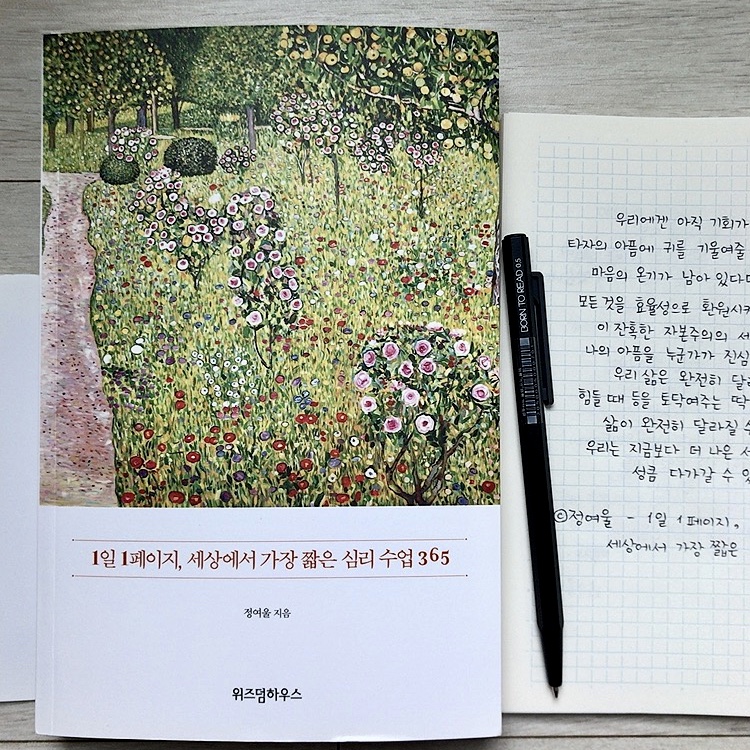 1일 1페이지, 세상에서 가장 짧은 심리 수업 365
정여울 지음
위즈덤하우스
BORN TO READ 0.5
우리에겐 아직 기회가
타자의 아픔에 귀를 기울여줄
마음의 온기가 남아 있다면
모든 것을 효율성으로 환원시키
이 잔혹한 자본주의의 세
나의 아픔을 누군가가 진심
우리 삶은 완전히 달
힘들 때 등을 토닥여주는 딱
삶이 완전히 달라질 수
우리는 지금보다 더 나은 세
성큼 다가갈 수 있
©정여울 - 1일 1페이지,
세상에서 가장 짧은